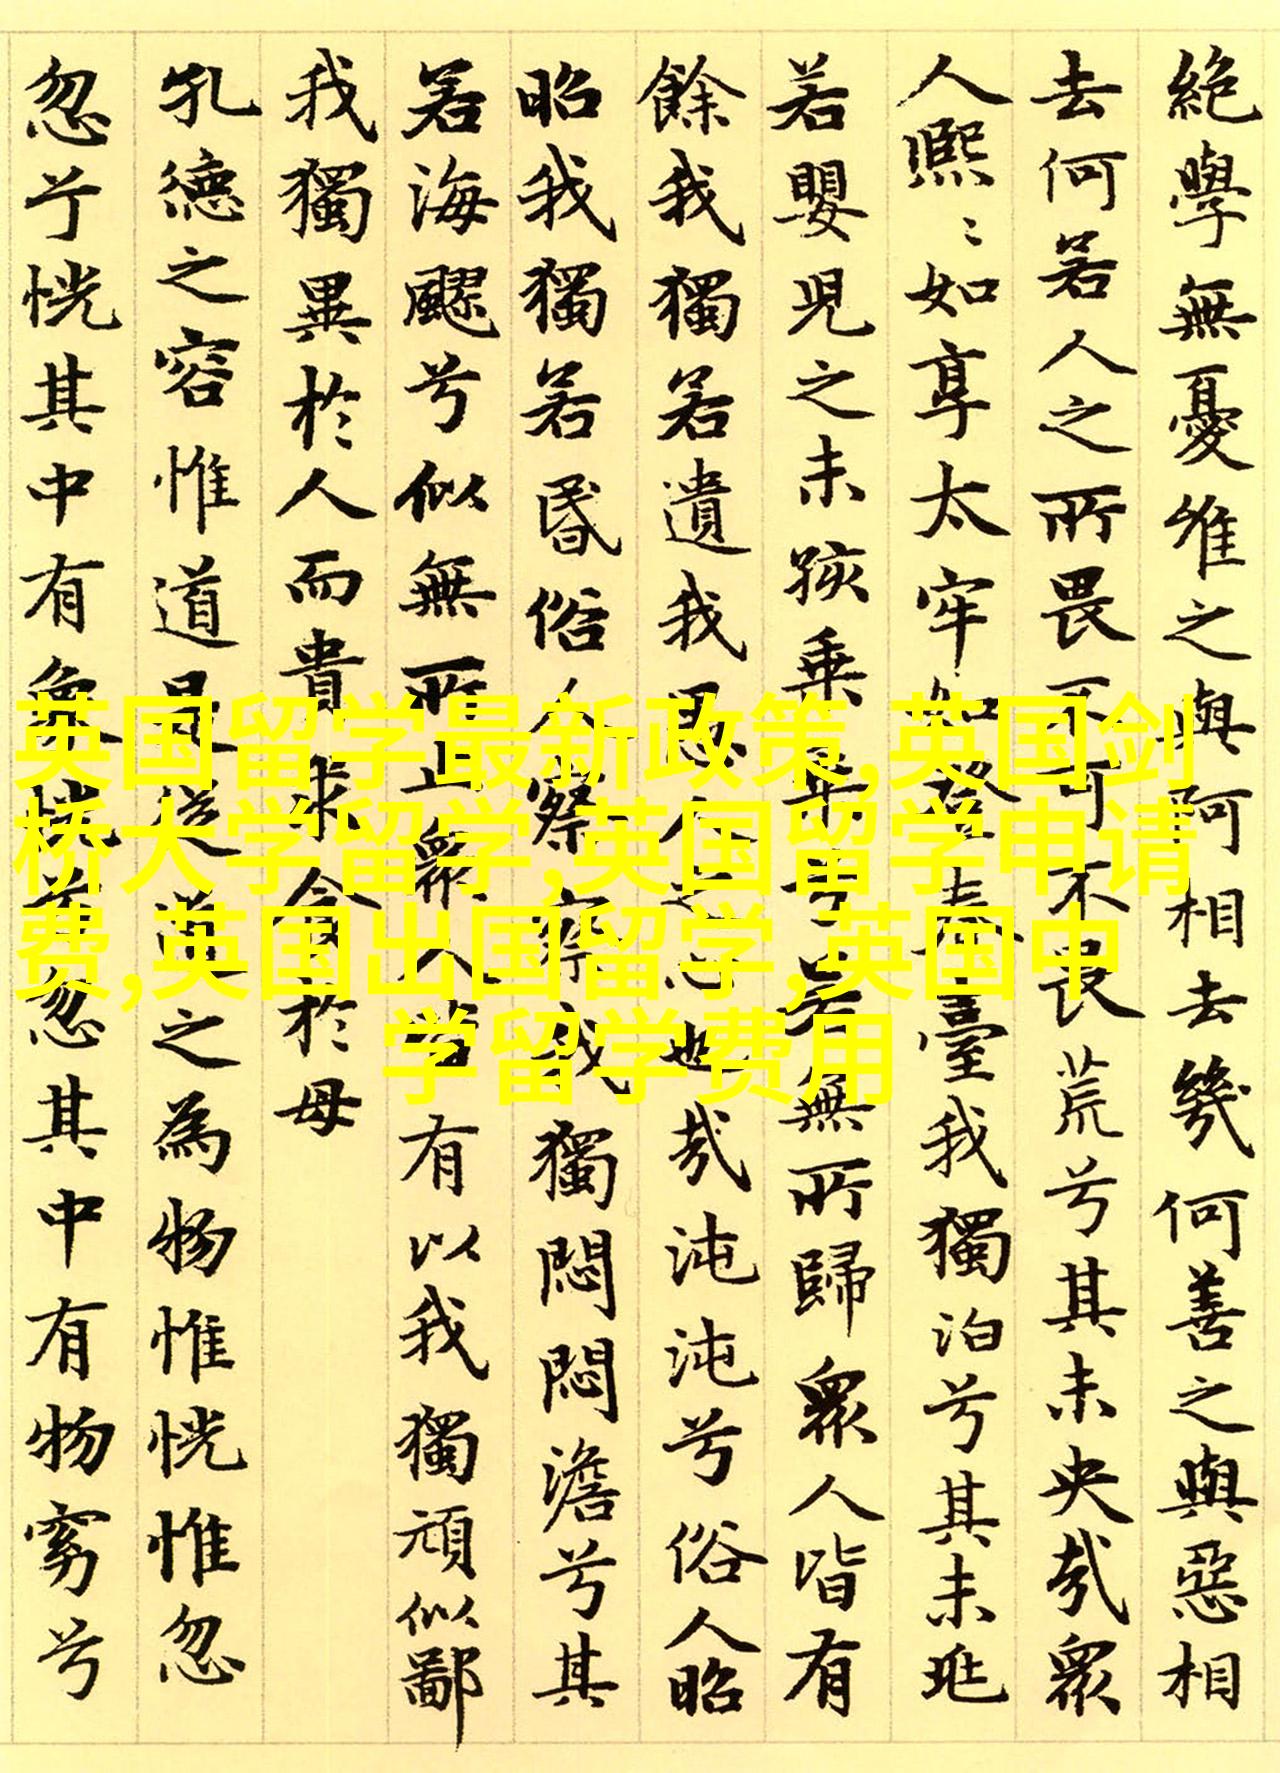 絶學無憂唯之與阿相去幾何善之與惡相
去何若人之所畏不可不畏荒兮其未央哉眾
人熙〻如享太牢如登春臺我獨泊兮其未兆
若嬰兒之未孩乘乘兮若無所歸眾人皆有
餘我獨若遺我愚人之心也哉沌沌兮俗人昭
昭我獨若昏俗人察察我獨悶悶澹兮其
若海飂兮似無所止眾人皆有以我獨頑似鄙
我獨異於人而貴求食於母
孔德之容惟道是從道之為物惟恍惟忽
忽兮恍其中有象恍兮忽其中有物窈兮
英国留学最新政策,英国剑
桥大学留学,英国留学申请
费,英国出国留学,英国中
学留学费用